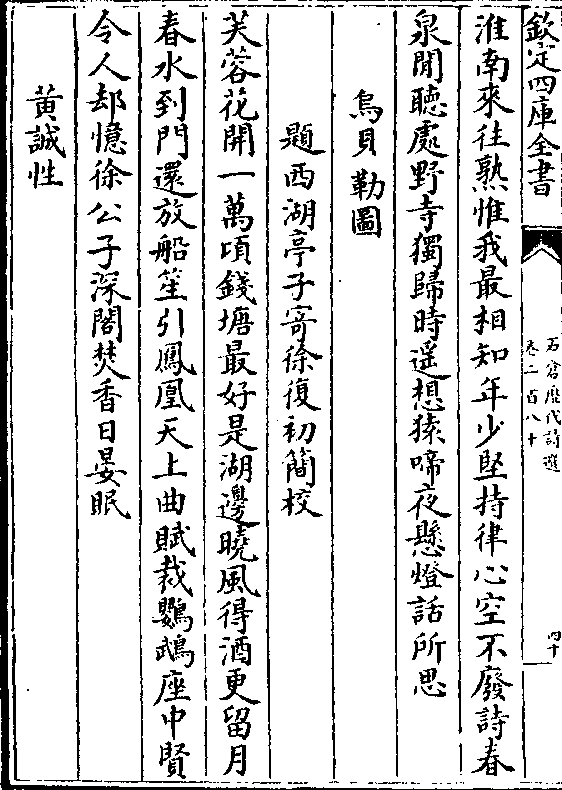 欽定四庫全書
石倉歷代詩選
卷二百八十
四十
淮南來往熟惟我最相知年少堅持律心空不廢詩春
泉閒聽處野寺獨歸時遥想猿啼夜懸燈話所思
烏貝勒圖
題西湖亭子寄徐復初簡校
芙蓉花開一萬頃錢塘最好是湖邊曉風得酒更留月
春水到門還放船笙引鳳凰天上曲賦裁鸚鵡座中賢
令人却憶徐公子深閣焚香日晏眠
黄誠性